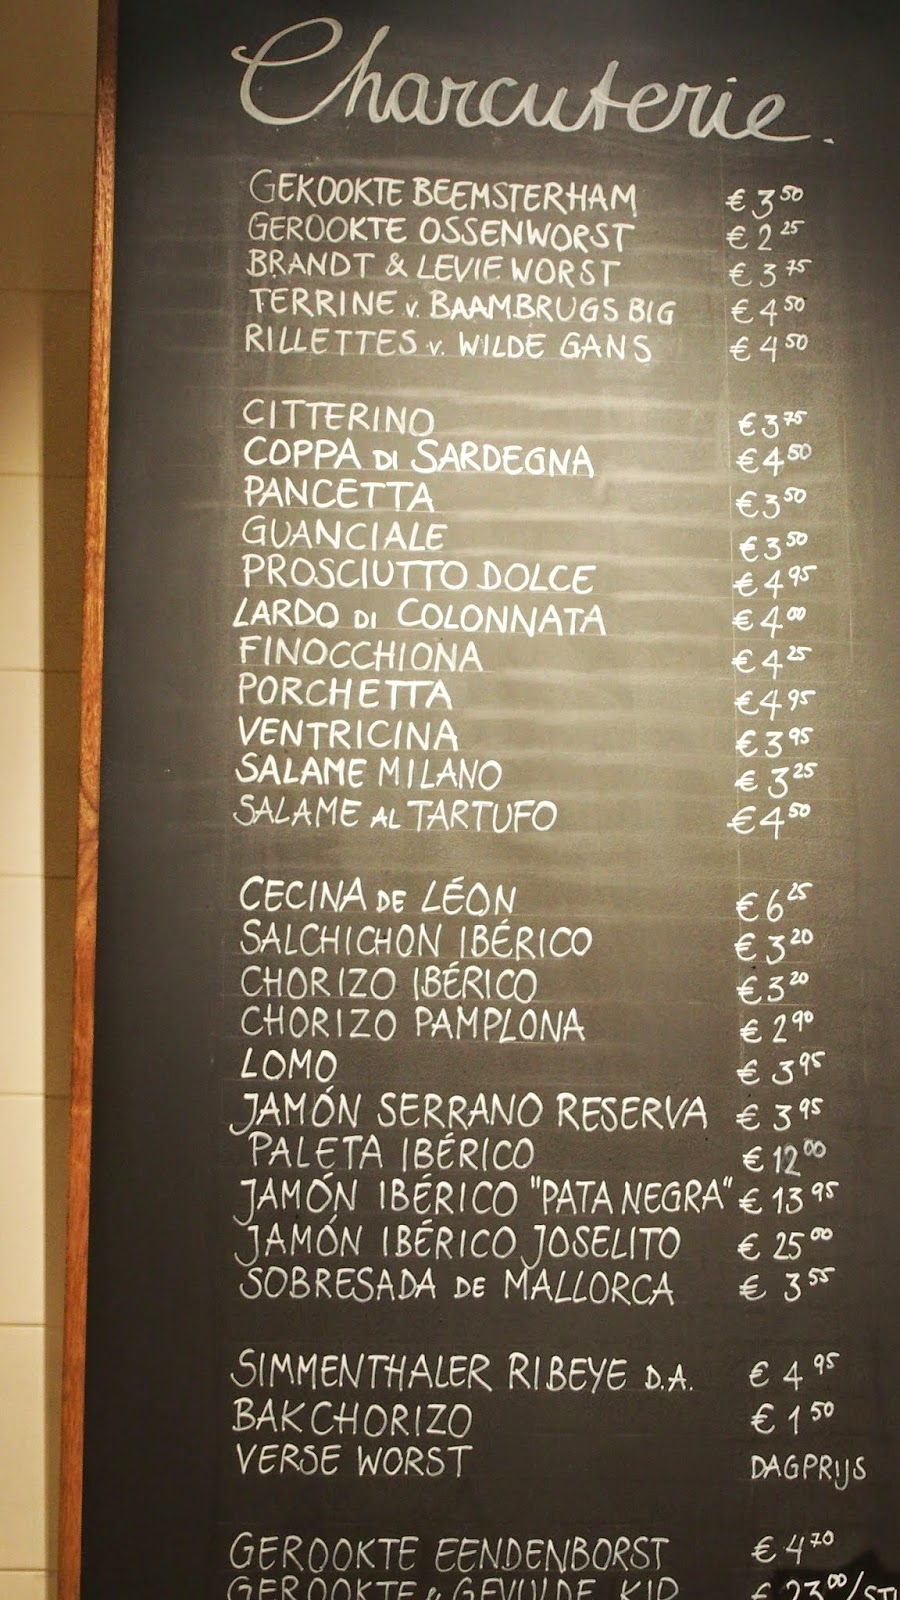 Charcuterie.
GEKOOKTE BEEMSTERHAM € 3 50
GEROOKTE OSSENWORST € 2 25
BRANDT & LEVIE WORST € 3 75
TERRINE v. BAAMBRUGS BIG € 4 50
RILLETTES v. WILDE GANS € 4 50
CITTERINO € 3 75
COPPA DI SARDEGNA € 4 50
PANCETTA € 3 50
GUANCIALE € 3 50
PROSCIUTTO DOLCE € 4 95
LARDO DI COLONNATA € 4 00
FINOCCHIONA € 4 25
PORCHETTA € 4 95
VENTRICINA € 3 95
SALAME MILANO € 3 25
SALAME AL TARTUFO € 4 50
CECINA DE LÉON € 6 25
SALCHICHON IBÉRICO € 3 20
CHORIZO IBÉRICO € 3 20
CHORIZO PAMPLONA € 2 90
LOMO € 3 95
JAMÓN SERRANO RESERVA € 3 95
PALETA IBÉRICO € 12 00
JAMÓN IBÉRICO "PATA NEGRA" € 13 95
JAMÓN IBÉRICO JOSELITO € 25 00
SOBRESADA DE MALLORCA € 3 55
SIMMENTHALER RIBEYE D.A. € 4 95
BAKCHORIZO € 1 50
VERSE WORST DAGPRIJS
GEROOKTE EENDENBORST € 4 70
GEROOKTE & GEVULDE KIP € 23 00/ST